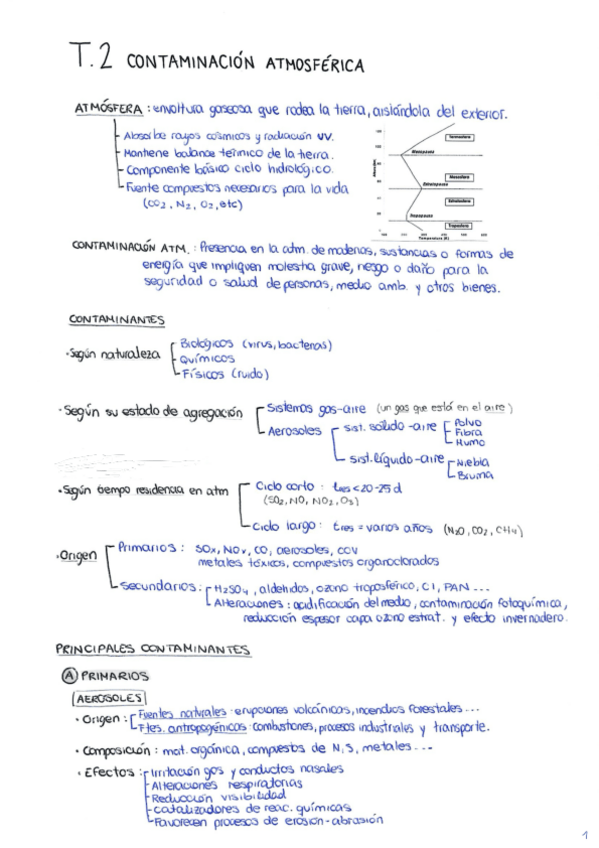 T.2 CONTAMINACIÓN ATMOSFÉRICA
ATMÓSFERA : envoltura gaseosa que rodea la tierra, aislándola del exterior.
Absorbe rayos cósmicos y radiación UV.
Mantiene balance térmico de la tierra.
Componente básico ciclo hidrológico.
Fuente compuestos necesarios para la vida
(CO2, N2, O2, etc)
Termosfera
Mesopausa
Mesosfera
Estratopausa
Estratosfera
Tropopausa
Troposfera
Temperatura (K)
CONTAMINACIÓN ATM. : Presencia en la atm. de materias, sustancias o formas de
energía que impliquen molestia grave, riesgo o daño para la
seguridad o salud de personas, medio amb. y otros bienes.
CONTAMINANTES
· Según naturaleza
Biológicos (virus, bacterias)
Químicos
Físicos (ruido)
· Según su estado de agregación
Sistemas gas-aire (un gas que está en el aire)
Aerosoles
sist. sólido-aire
Polvo
Fibra
Humo
sist. líquido-aire
Niebla
Bruma
· Según tiempo residencia en atm
Ciclo corto : tres < 20-25 d
(SO2, NO, NO2, O3)
Ciclo largo : tres = varios años (N2O, CO2, CH4)
· Origen
Primarios : SOx, NOx, CO, aerosoles, COV
metales tóxicos, compuestos organoclorados
Secundarios :
H2SO4, aldehidos, ozono troposférico, Cl, PAN ...
Alteraciones : acidificación del medio, contaminación fotoquímica,
reducción espesor capa ozono estrat. y efecto invernadero.
PRINCIPALES CONTAMINANTES
A PRIMARIOS
AEROSOLES
· Origen :
Fuentes naturales : erupciones volcánicas, incendios forestales ...
Ftes. antropogénicas : combustiones, procesos industriales y transporte.
· Composición : mat. orgánica, compuestos de N, S, metales ...
· Efectos :
Irritación ojos y conductos nasales
Alteraciones respiratorias
Reducción visibilidad
Catalizadores de reac. químicas
Favorecen procesos de erosión-abrasión
1